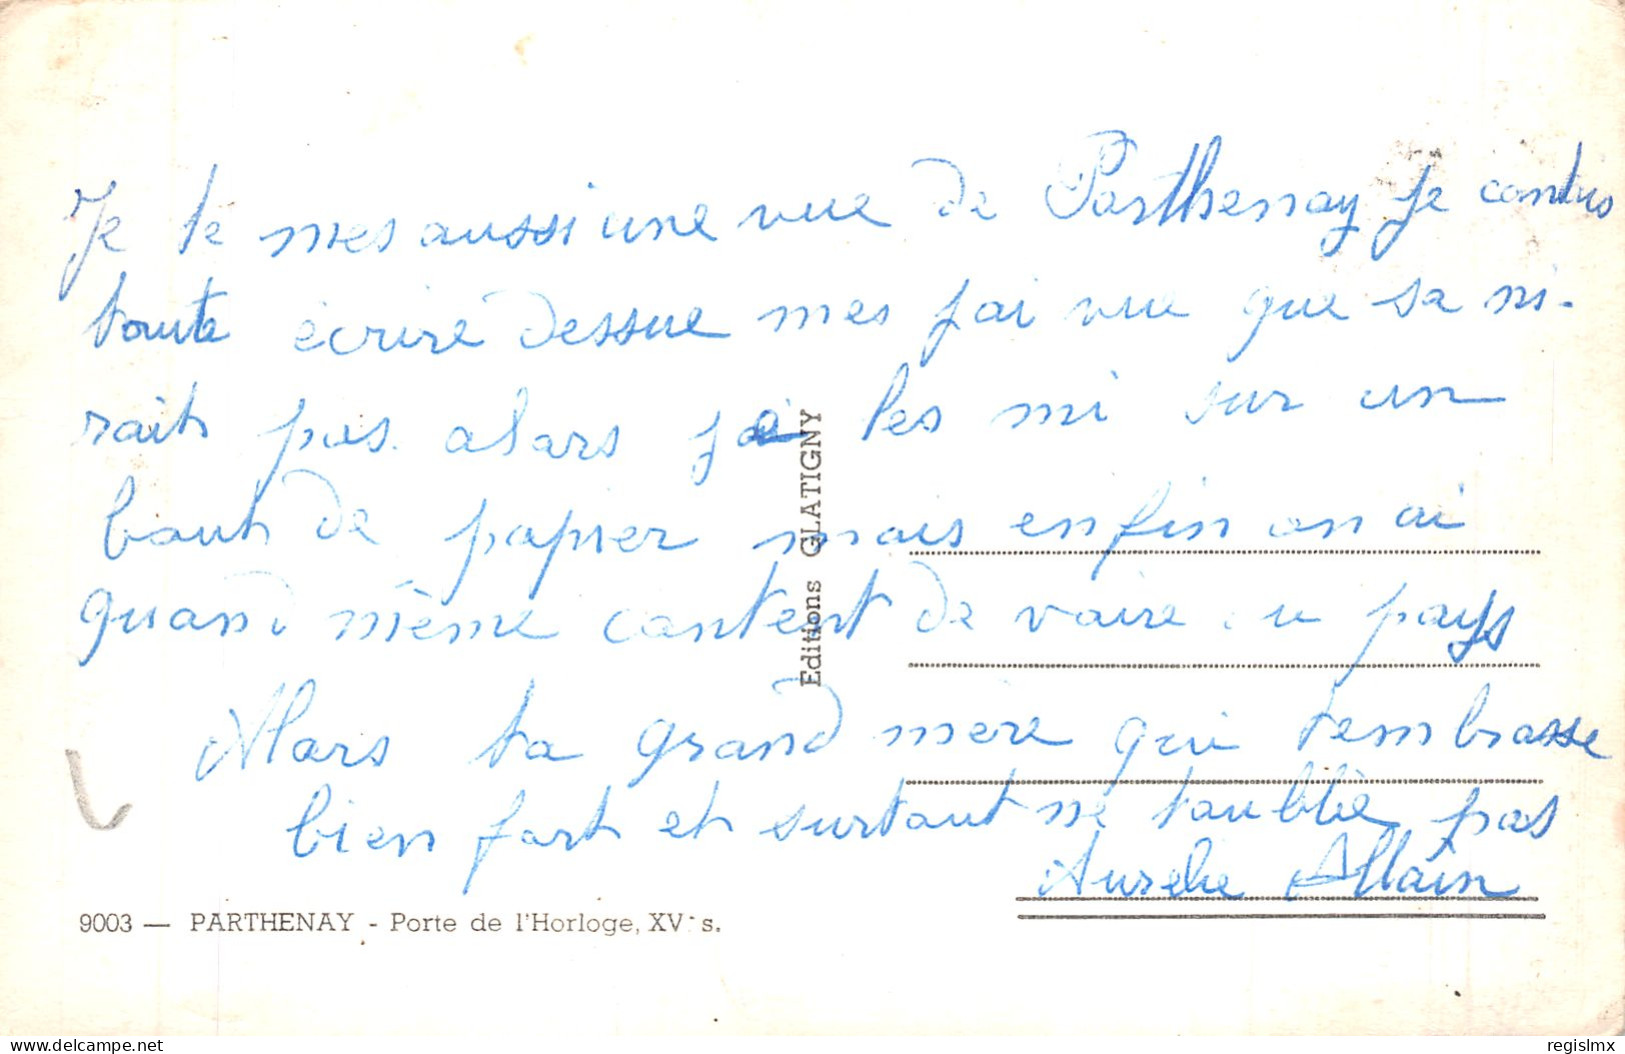 Je te mes aussi une vue de Parthenay Je contus
toute écrire dessue mes jai vue que sa ni-
rait pas alors jai les mi sur un
bout de papier mais enfin on ai
quand même content de voire pays
Alors ta grand mère qui tembrasse
bien fort et surtout ne toublie pas
Aurelie Allain
Editions GLATIGNY
9003 — PARTHENAY - Porte de l'Horloge, XVᵉ s.
regislmx
delcampe.net